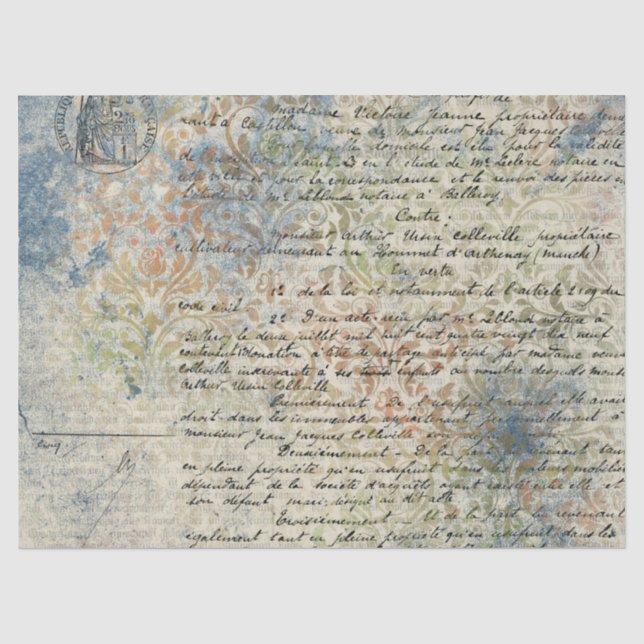 RÉPUBLIQUE FRANÇAISE
2/10
EN SUS
profit de
madame Victoire Jeanne propriétaire
à Castillon veuve de monsieur Jean Jacques
Pour laquelle domicile est élu pour la validité
de Saint-Lô en l'étude de Me Leclerc notaire en
et pour la correspondance et le renvoi des pièces en
l'étude de Me Leblond notaire à Balleroy.
Contre
monsieur Arthur Ursin Colleville propriétaire
cultivateur demeurant au Hommet d'Arthenay (manche)
En vertu
1° de la loi et notamment de l'article 2109 du
code civil
2° D'un acte reçu par Me Leblond notaire à
Balleroy le deux juillet mil huit cent quatre vingt dix neuf
contenant Donation à titre de partage anticipé par madame veuve
Colleville inscrivante à ses trois enfants au nombre desquels mons
Arthur Ursin Colleville
Premièrement - De l'usufruit auquel elle avait
droit dans les immeubles appartenant personnellement à
monsieur Jean Jacques Colleville son
Deuxièmement - De la part lui revenant tan
en pleine propriété qu'en usufruit dans les valeurs mobiliè
dépendant de la société d'acquêts ayant existé entre elle et
son défunt mari, désigné au dit acte
Troisièmement - Et de la part lui revenant
également tant en pleine propriété qu'en usufruit dans les
cinq